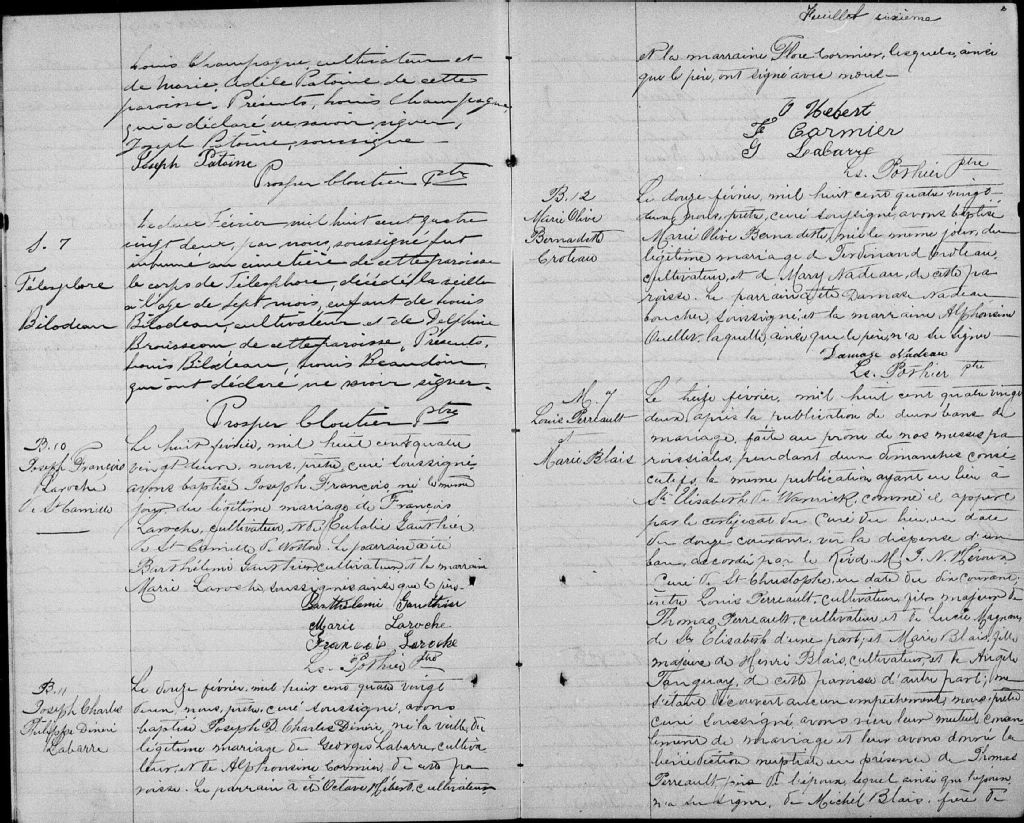 Louis Champagne, cultivateur et
de Marie Adèle Patoine de cette
paroisse. Présents, Louis Champagne,
qui a déclaré ne savoir signer,
Joseph Patoine, soussigné
Joseph Patoine
Prosper Cloutier Ptre
S. 7
Télesphore
Bilodeau
Le deux Février mil huit cent quatre
vingt deux, par nous, soussigné fut
inhumé au cimetière de cette paroisse
le corps de Télesphore, décédé la veille
à l'age de sept mois, enfant de Louis
Bilodeau, cultivateur et de Delphine
Brousseau de cette paroisse. Présents,
Louis Bilodeau, Louis Beaudoin,
qui ont déclaré ne savoir signer.
Prosper Cloutier Ptre
B. 10
Joseph François
Laroche
de St Camille
Le huit février, mil huit cent quatre
vingt deux, nous, prêtre, curé soussigné,
avons baptisé Joseph François né le même
jour du légitime mariage de François
Laroche, cultivateur, & de Eulalie Gauthier
de St Camille de Wotton. Le parrain a été
Barthélemi Gauthier, cultivateur, et la marraine
Marie Laroche, soussignés ainsi que le père
Barthélemi Gauthier
Marie Laroche
François Laroche
Ls. Pothier Ptre
B. 11
Joseph Charles
Philippe Dineri
Labarre
Le douze février, mil huit cent quatre vingt
deux, nous, prêtre, curé soussigné, avons
baptisé Joseph P. Charles Dineri, né la veille, du
légitime mariage de Georges Labarre, cultiva-
teur, et de Alphonsine Cormier, de cette pa
roisse. Le parrain a été Octave Hébert, cultivateur
Feuillet sixième
& la marraine Flore Cormier, lesquels, ainsi
que le père, ont signé avec nous
O Hebert
F Cormier
G Labarre
Ls. Pothier Ptre
B. 12
Marie Olive
Bernadette
Croteau
Le douze février, mil huit cent quatre vingt
deux, nous, prêtre, curé soussigné, avons baptisé
Marie Olive Bernadette, née le même jour, du
légitime mariage de Ferdinand Croteau,
cultivateur, et de Mary Nadeau, de cette pa
roisse. Le parrain a été Damase Nadeau
boucher, soussigné, et la marraine Alphonsine
Ouellet, laquelle, ainsi que le père, n'a su signer
Damase Nadeau
Ls. Pothier Ptre
M. 7
Louis Perreault
&
Marie Blais
Le treize février, mil huit cent quatre vingt
deux, après la publication de deux bans de
mariage, faite au prône de nos messes pa
roissiales, pendant deux dimanches consé
cutifs, la même publication ayant eu lieu à
Ste Elisabeth de Warwick, comme il appert
par le certificat du Curé du lieu, en date
du douze courant, vu la dispense d'un
ban, accordée par le Révd. M. J. N. Héroux
Curé de St Christophe, en date du dix courant,
entre Louis Perreault, cultivateur, fils majeur de
Thomas Perreault, cultivateur et de Lucie Magnan,
de Ste Elisabeth d'une part; et Marie Blais, fille
majeure de Henri Blais, cultivateur, et de Angèle
Tanguay, de cette paroisse d'autre part; ne
s'étant découvert aucun empêchement, nous, prêtre
curé soussigné avons reçu leur mutuel consen
tement de mariage et leur avons donné la
bénédiction nuptiale en présence de Thomas
Perreault, père de l'époux, lequel ainsi que l'époux,
n'a su signer, de Michel Blais, frère de